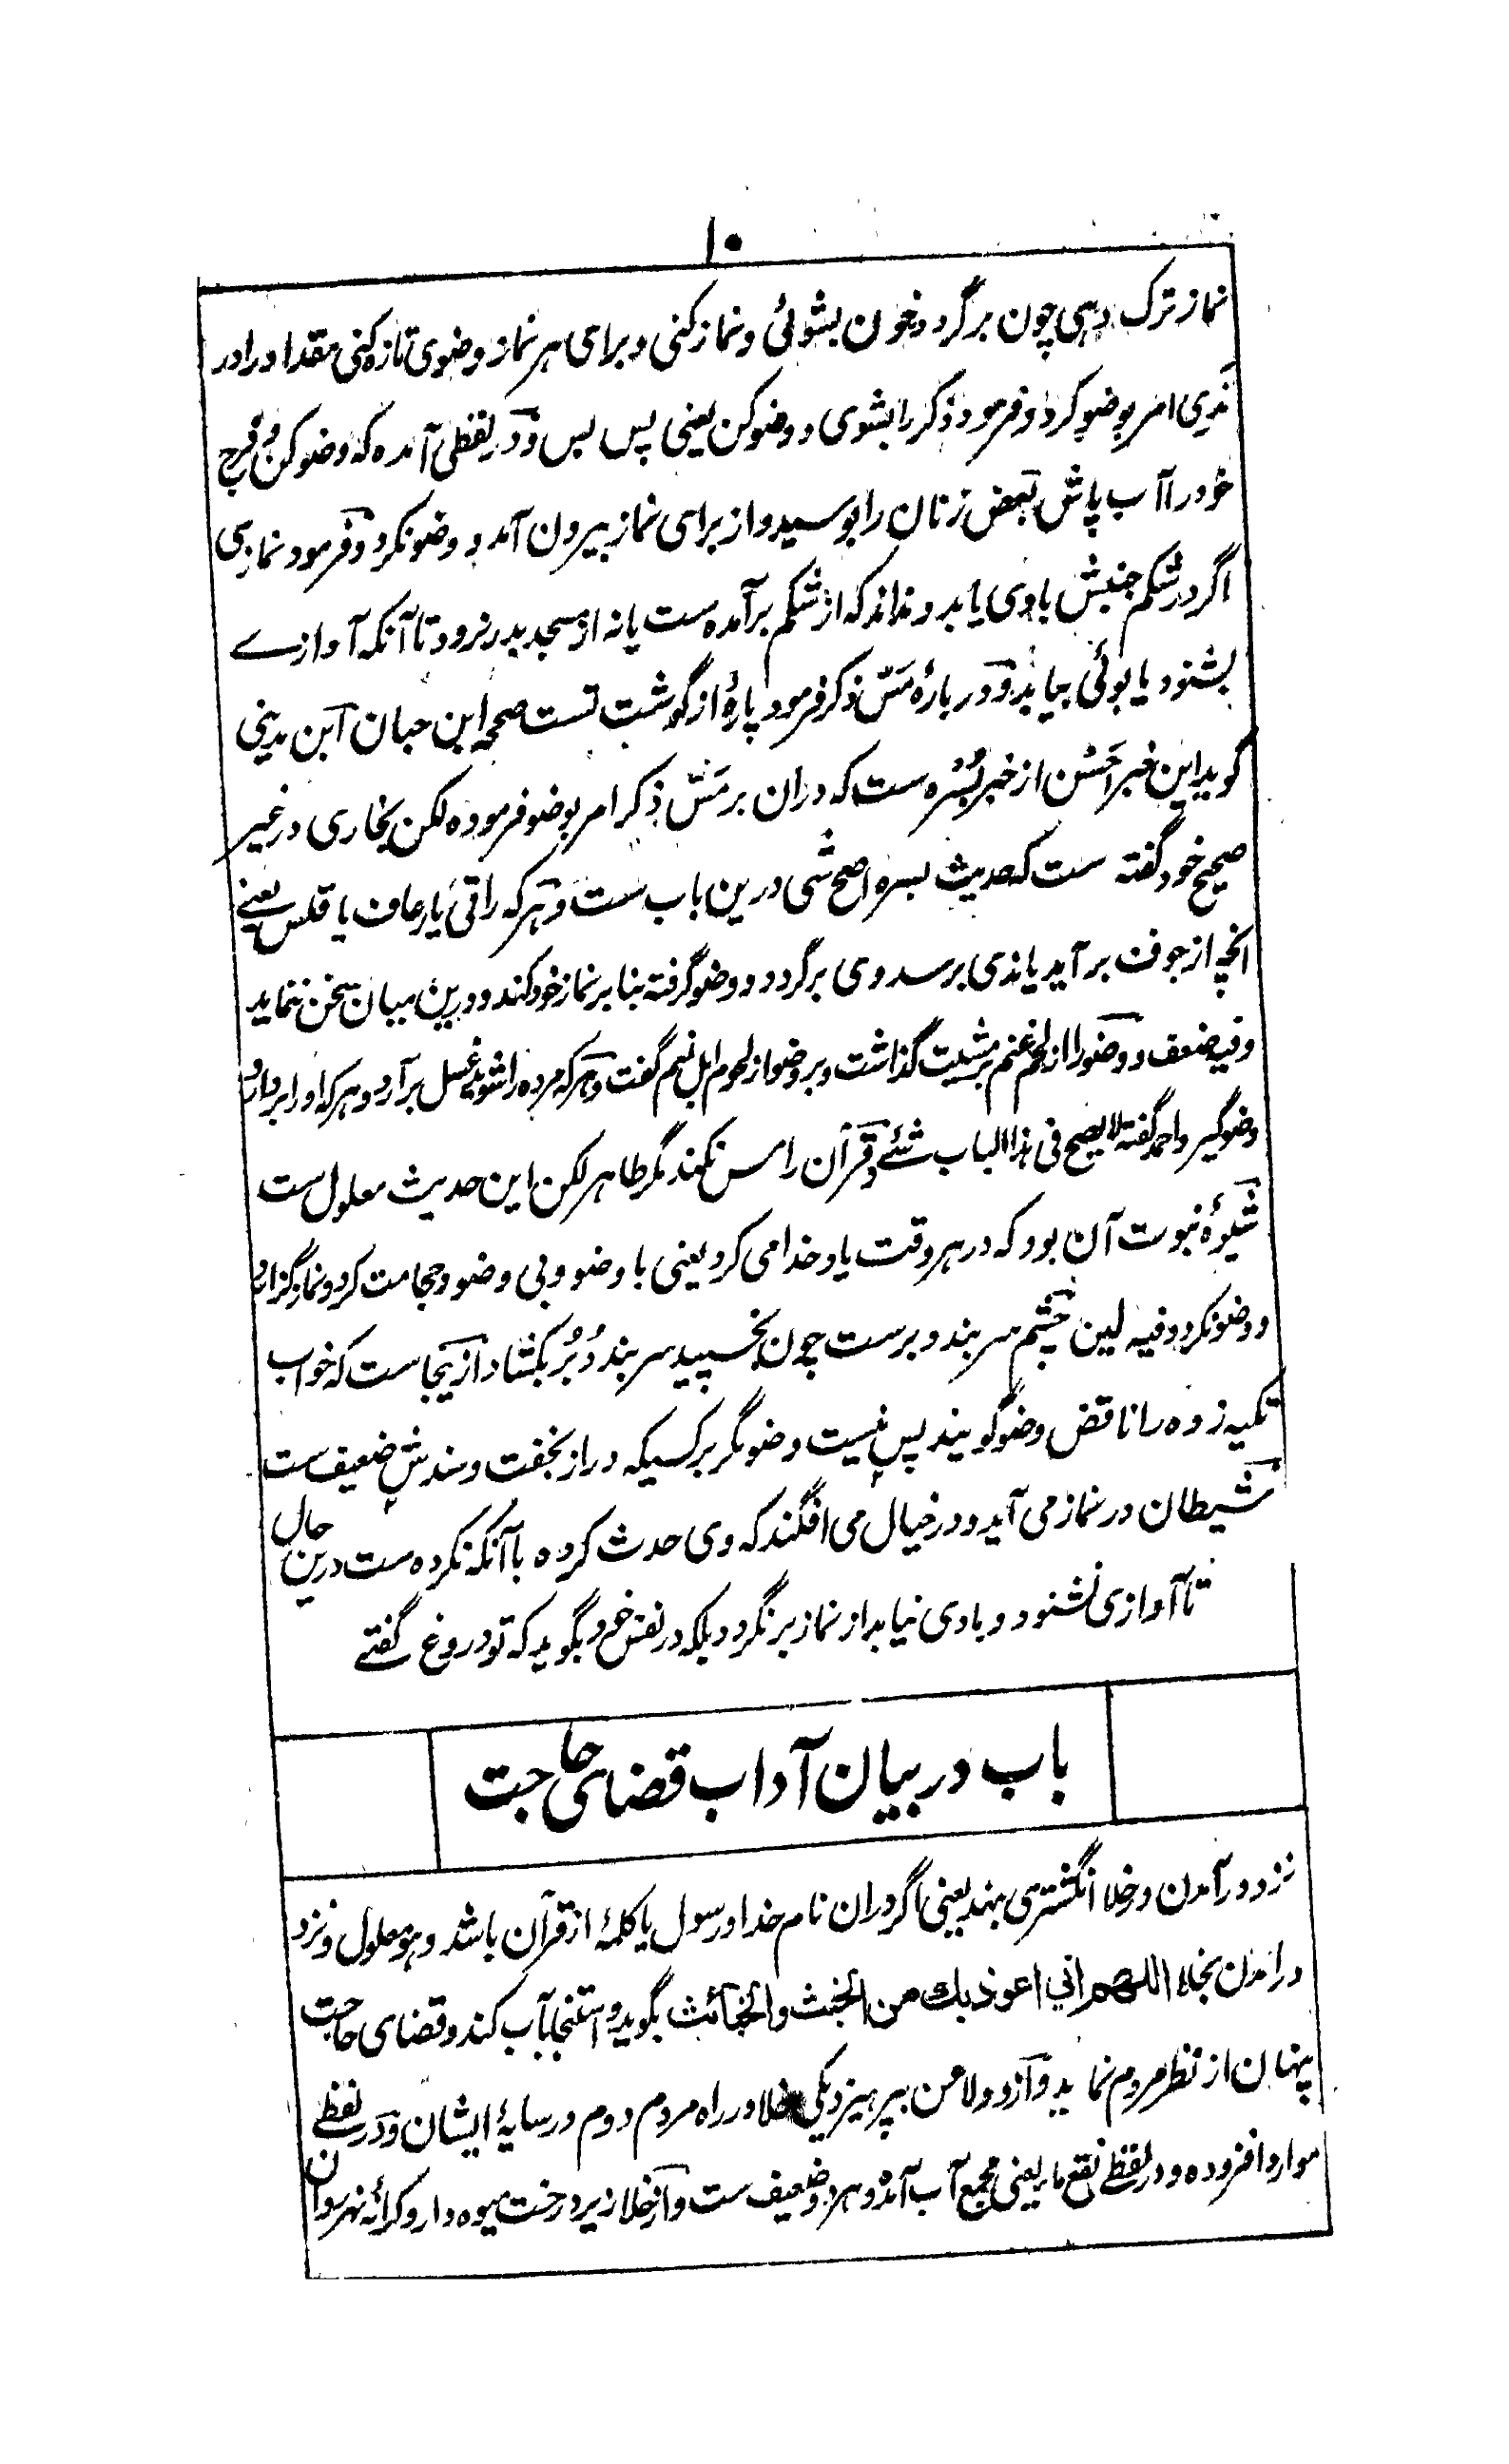 ۱۰
نماز ترک دهی چون برگردد خون بشوئی و نماز کنی و برای هر نماز وضوی تازه کنی مقداد را در
مذی امر بوضو کرد و فرمود ذکر را بشوی و وضو کن یعنی پس بس و در لفظی آمده که وضو کن و فرج
خود را آب پاش بعض زنان را بوسید و از برای نماز بیرون آمد و وضو نکرد و فرمود نمازی
اگر در شکم جنبش بادی یابد و نداند که از شکم برآمده ست یا نه از مسجد بدر نرود تا آنکه آوازے
بشنود یا بوئی بیابد و در بارۂ مَسّ ذکر فرمود پارۂ از گوشت تست صححه ابن حبان ابن مدینی
گوید این خبر احسن از خبر بُسْرَه ست که دران بر مَسّ ذکر امر بوضو فرموده لکن بخاری در غیر
صحیح خود گفته ست که حدیث بسره اصح شی درین باب ست و هر که را قی یا رعاف یا قلس یعنے
انچه از جوف برآید یا مذی برسد وی برگردد و وضو گرفته بنا بر نماز خود کند و درین میان سخن ننماید
و فیه ضعف و وضو را از لحم غنم بر مشیت گذاشت و بر وضو از لحوم ابل نعم گفت و هر که مرده را شوید غسل برآرد و هر که او را بردارد
وضو گیرد و احمد گفته لا یصح فی هذا الباب شئے و قرآن را مس نکند مگر طاهر لکن این حدیث معلول ست
شیوۂ نبوت آن بود که در هر وقت یاد خدا می کرد یعنی با وضو و بی وضو و حجامت کرد و نماز گزارد
و وضو نکرد و فیه لین چشم سر بند دبر ست چون بخسپید سر بند دُبُر بکشاد از ینجاست که خواب
تکیه زده را ناقض وضو گویند پس نیست وضو مگر بر کسیکه دراز بخفت و سندش ضعیف ست
شیطان در نماز می آید و در خیال می افگند که وی حدث کرده با آنکه نکرده ست درین حال
تا آوازی نشنود و بادی نیابد از نماز برنگردد بلکه در نفس خود بگوید که تو دروغ گفتے
باب در بیان آداب قضای حاجت
نزد در آمدن در خلا انگشتری بنهد یعنی اگر دران نام خدا و رسول یا کلمۂ از قرآن باشد و هو معلول و نزد
درآمدن بخلاء اللهم اني اعوذ بك من الخبث والخبائث بگوید و استنجا بآب کند و قضای حاجت
پنهان از نظر مردم نماید و از دو لاعن بپرهیزد یکی خلا در راه مردم دوم در سایۂ ایشان و در لفظے
موارد افزوده و در لفظے نقع ماء یعنی مجمع آب آمده و هر دو ضعیف ست و از خلا زیر درخت میوه دار و کرانۂ نهر روان